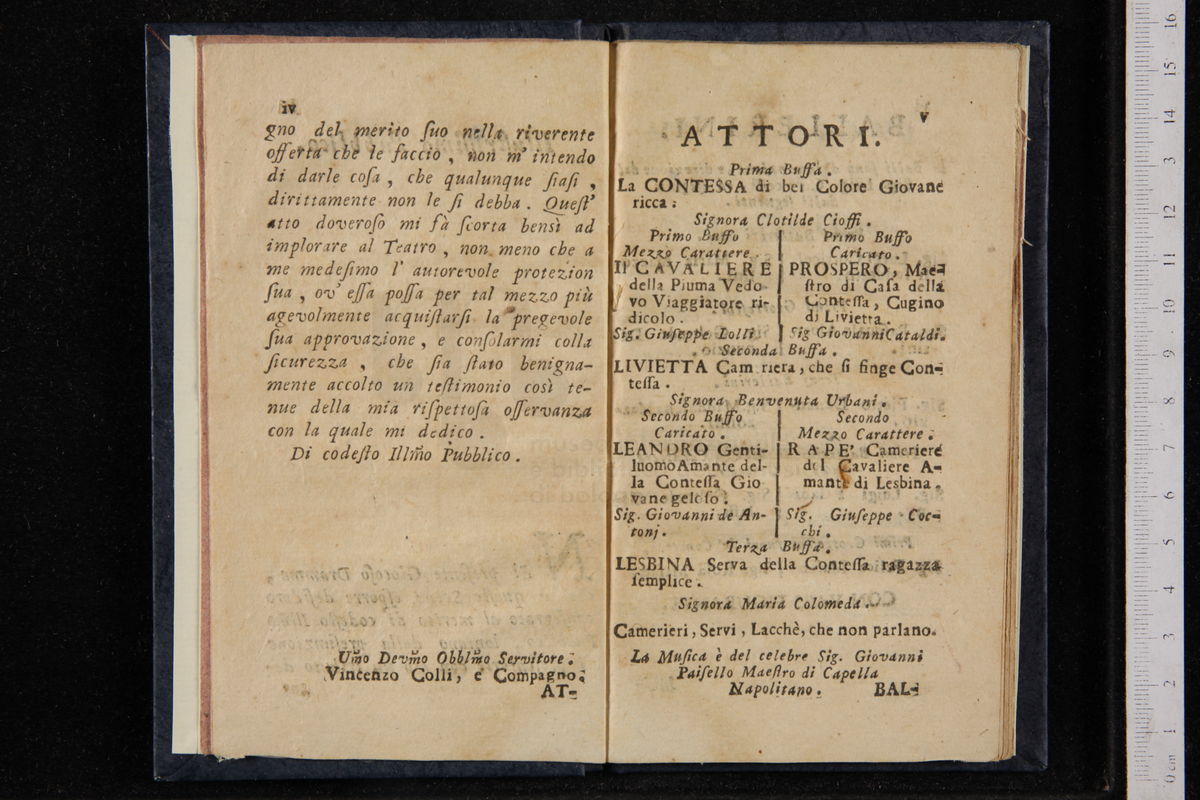 iv
gno del merito ſuo nella riverente
offerta che le faccio , non m' intendo
di darle coſa , che qualunque ſiaſi ,
dirittamente non le ſi debba . Queſt'
atto doveroſo mi fà ſcorta bensì ad
implorare al Teatro , non meno che a
me medeſimo l' autorevole protezion
ſua , ov' eſſa poſſa per tal mezzo più
agevolmente acquiſtarſi la pregevole
ſua approvazione , e conſolarmi colla
ſicurezza , che ſia ſtato benigna-
mente accolto un teſtimonio così te-
nue della mia riſpettoſa oſſervanza
con la quale mi dedico .
Di codeſto Illm̃o Pubblico .
Um̃o Devm̃o Obblm̃o Servitore .
Vincenzo Colli, e Compagno.
AT-
v
ATTORI.
Prima Buffa .
La CONTESSA di bel Colore Giovane
ricca :
Signora Clotilde Cioffi .
Primo Buffo
Mezzo Carattere .
Il CAVALIERE
della Piuma Vedo
vo Viaggiatore ri-
dicolo .
Sig. Giuſeppe Lolli
Primo Buffo
Caricato .
PROSPERO, Mae-
ſtro di Caſa della
Conteſſa, Cugino
di Livietta .
Sig Giovanni Cataldi.
Seconda Buffa .
LIVIETTA Cam riera, che ſi finge Con-
teſſa .
Signora Benvenuta Urbani .
Secondo Buffo
Caricato .
LEANDRO Genti-
luomo Amante del-
la Conteſſa Gio
vane geloſo .
Sig. Giovanni de An-
tonj .
Secondo
Mezzo Carattere .
RAPE' Cameriere
del Cavaliere A-
mante di Lesbina .
Sig. Giuſeppe Coc-
chi .
Terza Buffa .
LESBINA Serva della Conteſſa ragazza
ſemplice .
Signora Maria Colomeda .
Camerieri, Servi, Lacchè, che non parlano.
La Muſica è del celebre Sig. Giovanni
Paiſello Maeſtro di Capella
Napolitano .
BAL-
0 cm 1 2 3 4 5 6 7 8 9 10 11 12 13 14 15 16